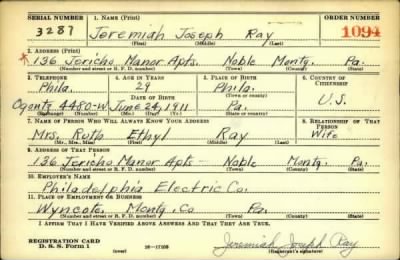 SERIAL NUMBER 1. NAME (Print) ORDER NUMBER
3287 Jeremiah Joseph Ray 1094
(First) (Middle) (Last)
2. ADDRESS (Print)
* 136 Jericho Manor Apts. Noble Montg. Pa.
(Number and street or R. F. D. number) (Town) (County) (State)
3. TELEPHONE 4. AGE IN YEARS 5. PLACE OF BIRTH 6. COUNTRY OF CITIZENSHIP
Phila. 29 Phila.
DATE OF BIRTH (Town or county)
Ogontz 4480-W June 24, 1911 Pa. U.S.
(State or country)
7. NAME OF PERSON WHO WILL ALWAYS KNOW YOUR ADDRESS 8. RELATIONSHIP OF THAT PERSON
Mrs. Ruth Ethyl Ray Wife
(Mr., Mrs., Miss) (First) (Middle) (Last)
9. ADDRESS OF THAT PERSON
136 Jericho Manor Apts - Noble Montg. Pa.
(Number and street or R. F. D. number) (Town) (County) (State)
10. EMPLOYER'S NAME
Philadelphia Electric Co.
11. PLACE OF EMPLOYMENT OR BUSINESS
Wyncote, Montg. Co Pa.
(Number and street or R. F. D. number) (Town) (County) (State)
I AFFIRM THAT I HAVE VERIFIED ABOVE ANSWERS AND THAT THEY ARE TRUE.
REGISTRATION CARD
D. S. S. Form 1 (over) 16-17105 Jeremiah Joseph Ray
(Registrant's signature)